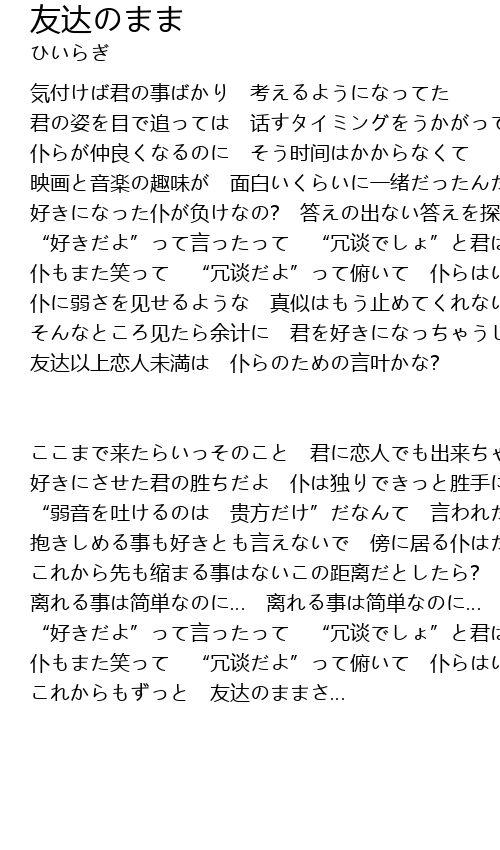 友达のまま
ひいらぎ
気付けば君の事ばかり　考えるようになってた
君の姿を目で追っては　話すタイミングをうかがって
仆らが仲良くなるのに　そう时间はかからなくて
映画と音楽の趣味が　面白いくらいに一绪だったんだ
好きになった仆が负けなの?　答えの出ない答えを探
“好きだよ”って言ったって　“冗谈でしょ”と君は
仆もまた笑って　“冗谈だよ”って俯いて　仆らはい
仆に弱さを见せるような　真似はもう止めてくれない
そんなところ见たら余计に　君を好きになっちゃうし
友达以上恋人未満は　仆らのための言叶かな?
ここまで来たらいっそのこと　君に恋人でも出来ちゃ
好きにさせた君の胜ちだよ　仆は独りできっと胜手に
“弱音を吐けるのは　贵方だけ”だなんて　言われた
抱きしめる事も好きとも言えないで　傍に居る仆はた
これから先も缩まる事はないこの距离だとしたら?
离れる事は简単なのに…　离れる事は简単なのに…
“好きだよ”って言ったって　“冗谈でしょ”と君は
仆もまた笑って　“冗谈だよ”って俯いて　仆らはい
これからもずっと　友达のままさ…